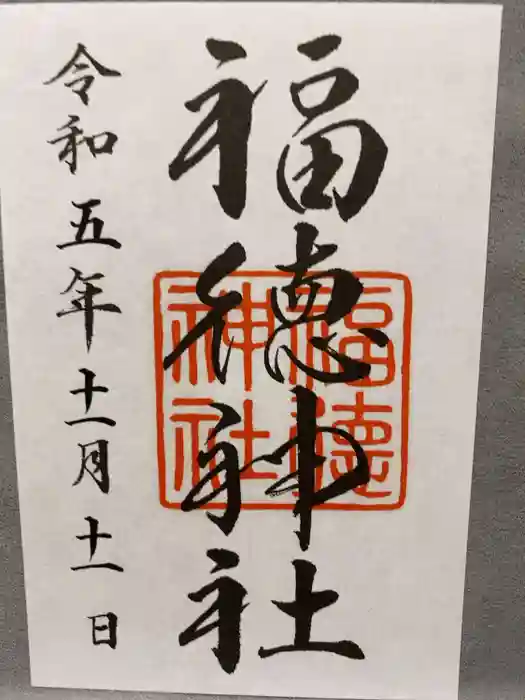 福徳神社
福徳神社
令和五年十一月十一日